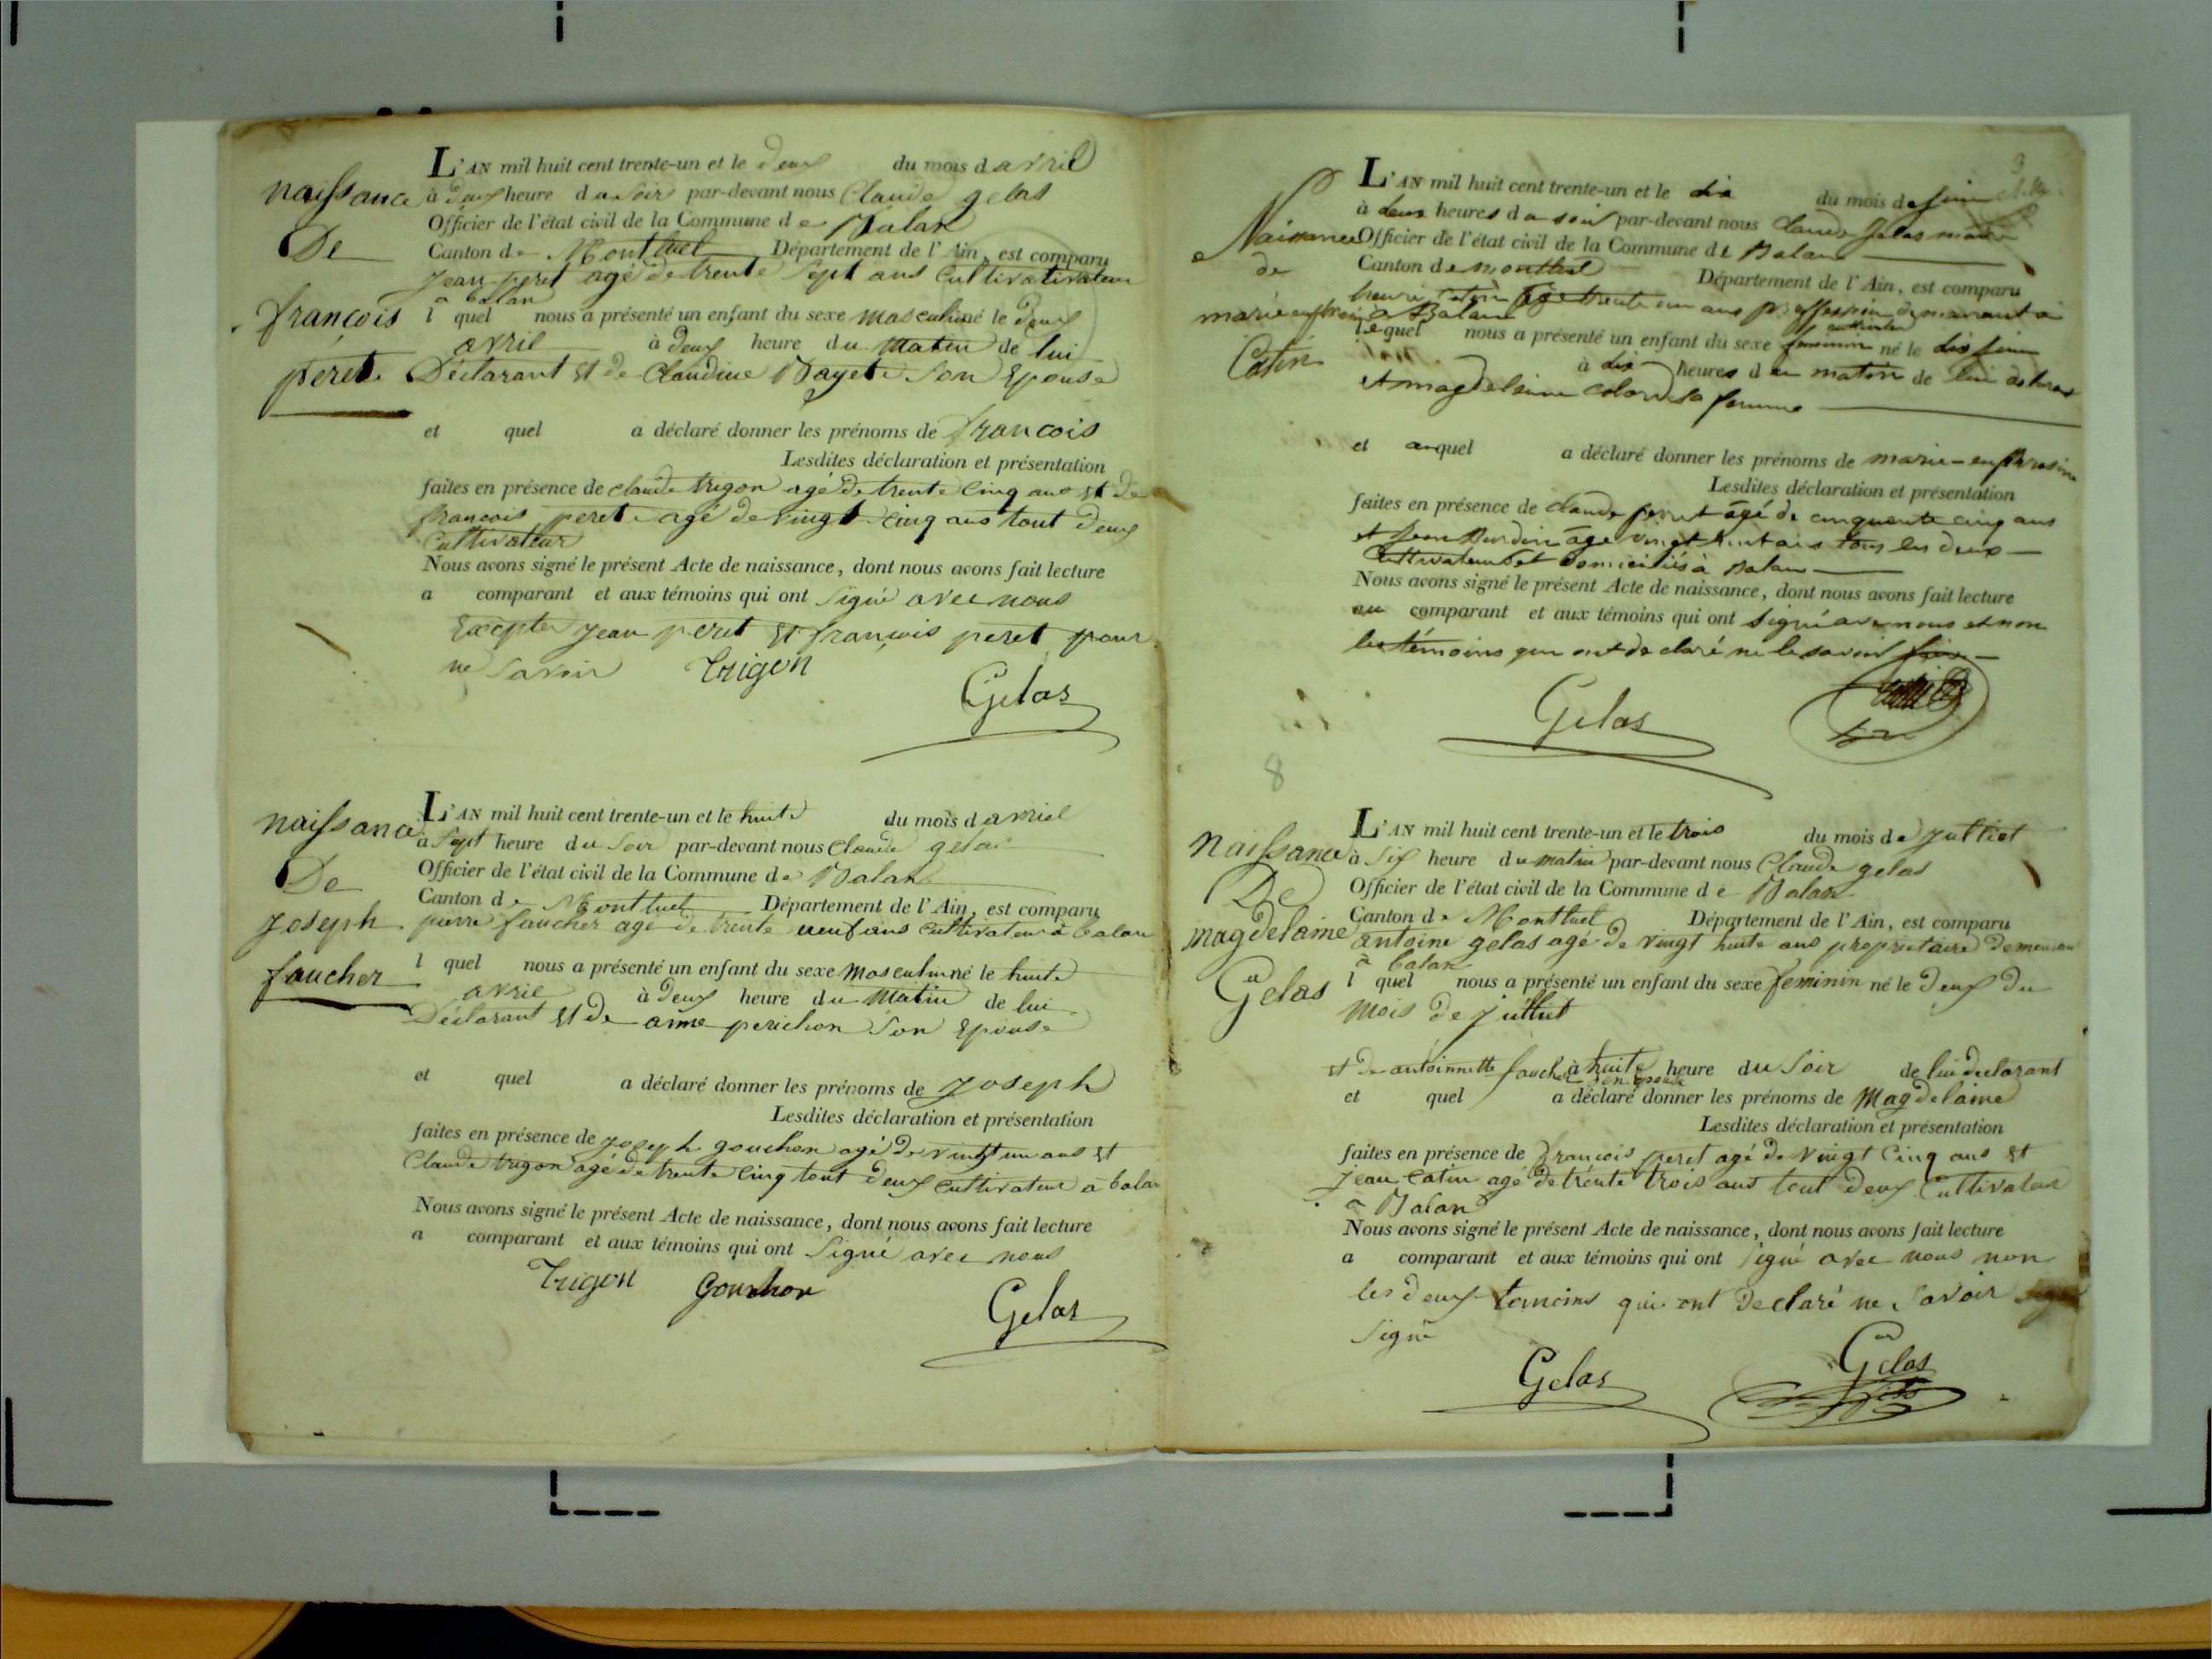 naissance
De
françois
peret
L'AN mil huit cent trente-un et le deux du mois d avril
à deux heure du soir par-devant nous Claude gelas
Officier de l'état civil de la Commune de Balan
Canton de Montluel Département de l'Ain, est comparu
Jean peret agé de trente sept ans Cultivativateur
a balan
l quel nous a présenté un enfant du sexe masculin né le deux
avril à deux heure du matin de lui
Déclarant et de Claudine Bayet son Epouse
et quel a déclaré donner les prénoms de françois
Lesdites déclaration et présentation
faites en présence de claude trigon agé de trente cinq ans et de
francois peret agé de vingt cinq ans tout deux
Cultivateur
Nous avons signé le présent Acte de naissance, dont nous avons fait lecture
a comparant et aux témoins qui ont signé avec nous
Excepter Jean peret et françois peret pour
ne savoir Trigon
Gelas
naissance
De
Joseph
faucher
L'AN mil huit cent trente-un et le huite du mois d avriel
à sept heure du soir par-devant nous Claude gelas
Officier de l'état civil de la Commune de Balan
Canton de Montluel Département de l'Ain, est comparu
pierre faucher agé de trente neuf ans cultivateur à balan
l quel nous a présenté un enfant du sexe masculin né le huite
avril à deux heure du matin de lui
Déclarant et de anne perichon son Epouse
et quel a déclaré donner les prénoms de Joseph
Lesdites déclaration et présentation
faites en présence de Joseph gouchon agé de vingt un ans et
Claude trigon agé de trente cinq tout deux cultivateur à balan
Nous avons signé le présent Acte de naissance, dont nous avons fait lecture
a comparant et aux témoins qui ont signé avec nous
Trigon Gouchon
Gelas
3
Naissance
de
marie
Catin
L'AN mil huit cent trente-un et le dix du mois de juin
à deux heures du soir par-devant nous Claude Gelas maire
Officier de l'état civil de la Commune de Balan
Canton de montluel Département de l'Ain, est comparu
agé trente un ans proffession demeurant à
à Balan
lequel nous a présenté un enfant du sexe feminin né le dix juin
à dix heures du matin de lui
et magdeleine sa femme
et auquel a déclaré donner les prénoms de marie-
Lesdites déclaration et présentation
faites en présence de claude perret âgé de cinquante cinq ans
et Jean âgé vingt huit ans tous les deux
Cultivateurs et domiciliés à Balan
Nous avons signé le présent Acte de naissance, dont nous avons fait lecture
au comparant et aux témoins qui ont signé avec nous et non
les témoins qui ont declaré ne le savoir
Gelas
8
naissance
De
magdelaine
Gelas
L'AN mil huit cent trente-un et le trois du mois de Julliet
à six heure du matin par-devant nous Claude gelas
Officier de l'état civil de la Commune de Balan
Canton de Montluel Département de l'Ain, est comparu
antoine gelas agé de vingt huite ans propriétaire
à balan
l quel nous a présenté un enfant du sexe feminin né le deux du
mois de juillet
et de antoinette faucher à huite heure du soir de lui declarant
son epouse
et quel a déclaré donner les prénoms de Magdelaine
Lesdites déclaration et présentation
faites en présence de François peret agé de vingt cinq ans et
Jean Catin agé de trente trois ans tout deux Cultivateur
a Balan
Nous avons signé le présent Acte de naissance, dont nous avons fait lecture
a comparant et aux témoins qui ont signé avec nous non
les deux temoins qui ont declaré ne savoir
signé
Gelas Gelas